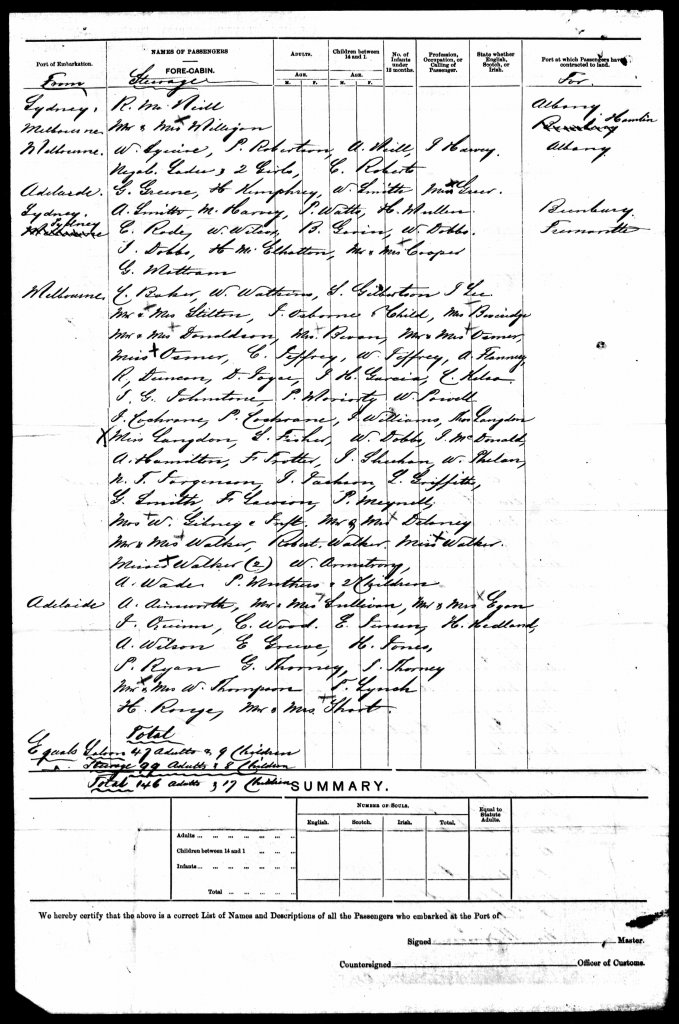 Port of Embarkation.
NAMES OF PASSENGERS
FORE-CABIN.
ADULTS.
Age.
M. F.
Children between 14 and 1.
Age.
M. F.
No. of Infants under 12 months.
Profession, Occupation, or Calling of Passenger.
State whether English, Scotch, or Irish.
Port at which Passengers have contracted to land.
From Steerage For
Sydney. R. Mc Neill Albany
Melbourne Mr & Mrs Milligan Hamlin
Melbourne. W. Squire, P. Robertson, A. Neill, J Harvey. Albany
2 Girls, C. Roberts
Adelaide. G. Greene, H Humphrey, W. Smith Miss Greer.
Sydney. A. Smith, M. Harvey, P. Watts, H. Mullen Bunbury.
Sydney C. Rede, W. Wilson, B. W. Dobbs. Fremantle
J. Dobbs, H. Mc Elhatton, Mr & Mrs Cooper
G. Mottram
Melbourne. C. Baker, W. Watkins, S. Gilbertson J Lee
Mr & Mrs Stilton, J. Osborne & Child, Mrs
Mr & Mrs Donaldson, Mrs. Bevan, Mr & Mrs Osmer,
Miss Osmer, C. Jeffrey, W. Jeffrey, A Flannery
R, Duncan, D. Joyce, J H. Garcia, C. Kelso
J. G. Johnstone, P. Moriarty W. Powell
J. Cochrane, P. Cochrane, J. Williams, Thos Langdon
Miss Langdon, L. Fisher, W. Dobbs, J. McDonald,
A. Hamilton, F. Trotter, J. Sheehan, W. Phelan,
N. T. Jorgenson, J. Jackson, L. Griffith,
G. Smith, F. Lawson, P. Meynell,
Mrs W. Gibney & Inft. Mr & Mrs Delaney
Mr & Mrs Walker, Robert. Walker. Miss Walker.
Misses Walker (2) W. Armstrong,
A. Wade. P. & 2 Children
Adelaide A. Ainsworth, Mr & Mrs Sullivan, Mr & Mrs Egan
J. Quinn, C. Wood. E. H. Hedland,
A. Wilson E Greeve, H. Jones,
P. Ryan G. Thorney, J. Thorney
Mr & Mrs W. Thompson T. Lynch
H. Rouge, Mr & Mrs. Short.
Total
Equals Saloon 47 Adults & 9 Children
Steerage 99 Adults & 8 Children
Total 146 Adults & 17 Children
SUMMARY.
NUMBER OF SOULS.
English. Scotch. Irish. Total.
Equal to Statute Adults.
Adults ... ... ... ... ... ...
Children between 14 and 1 ... ... ...
Infants ... ... ... ... ... ...
Total ... ... ... ...
We hereby certify that the above is a correct List of Names and Descriptions of all the Passengers who embarked at the Port of
Signed Master.
Countersigned Officer of Customs.